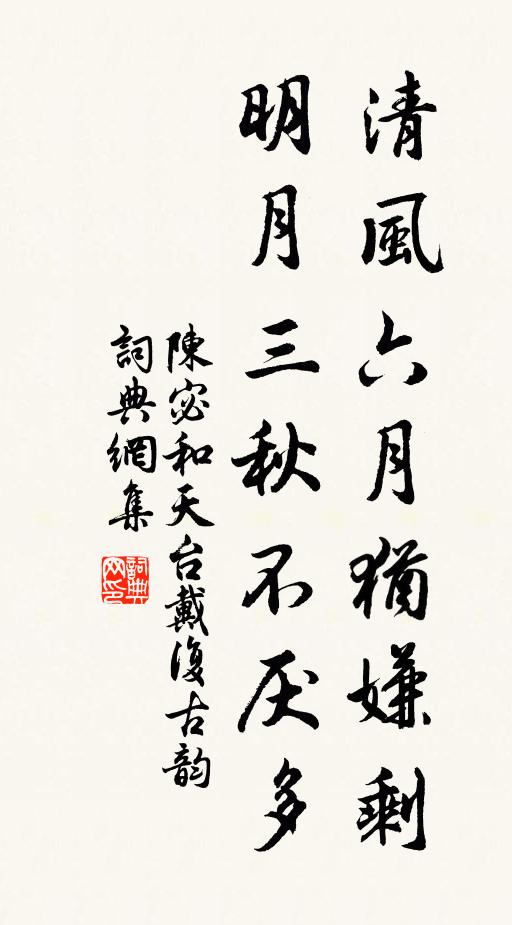 清風六月猶嫌剩
明月三秋不厌多
陳宓和天台戴復古韵
詞典網集
詞典网印